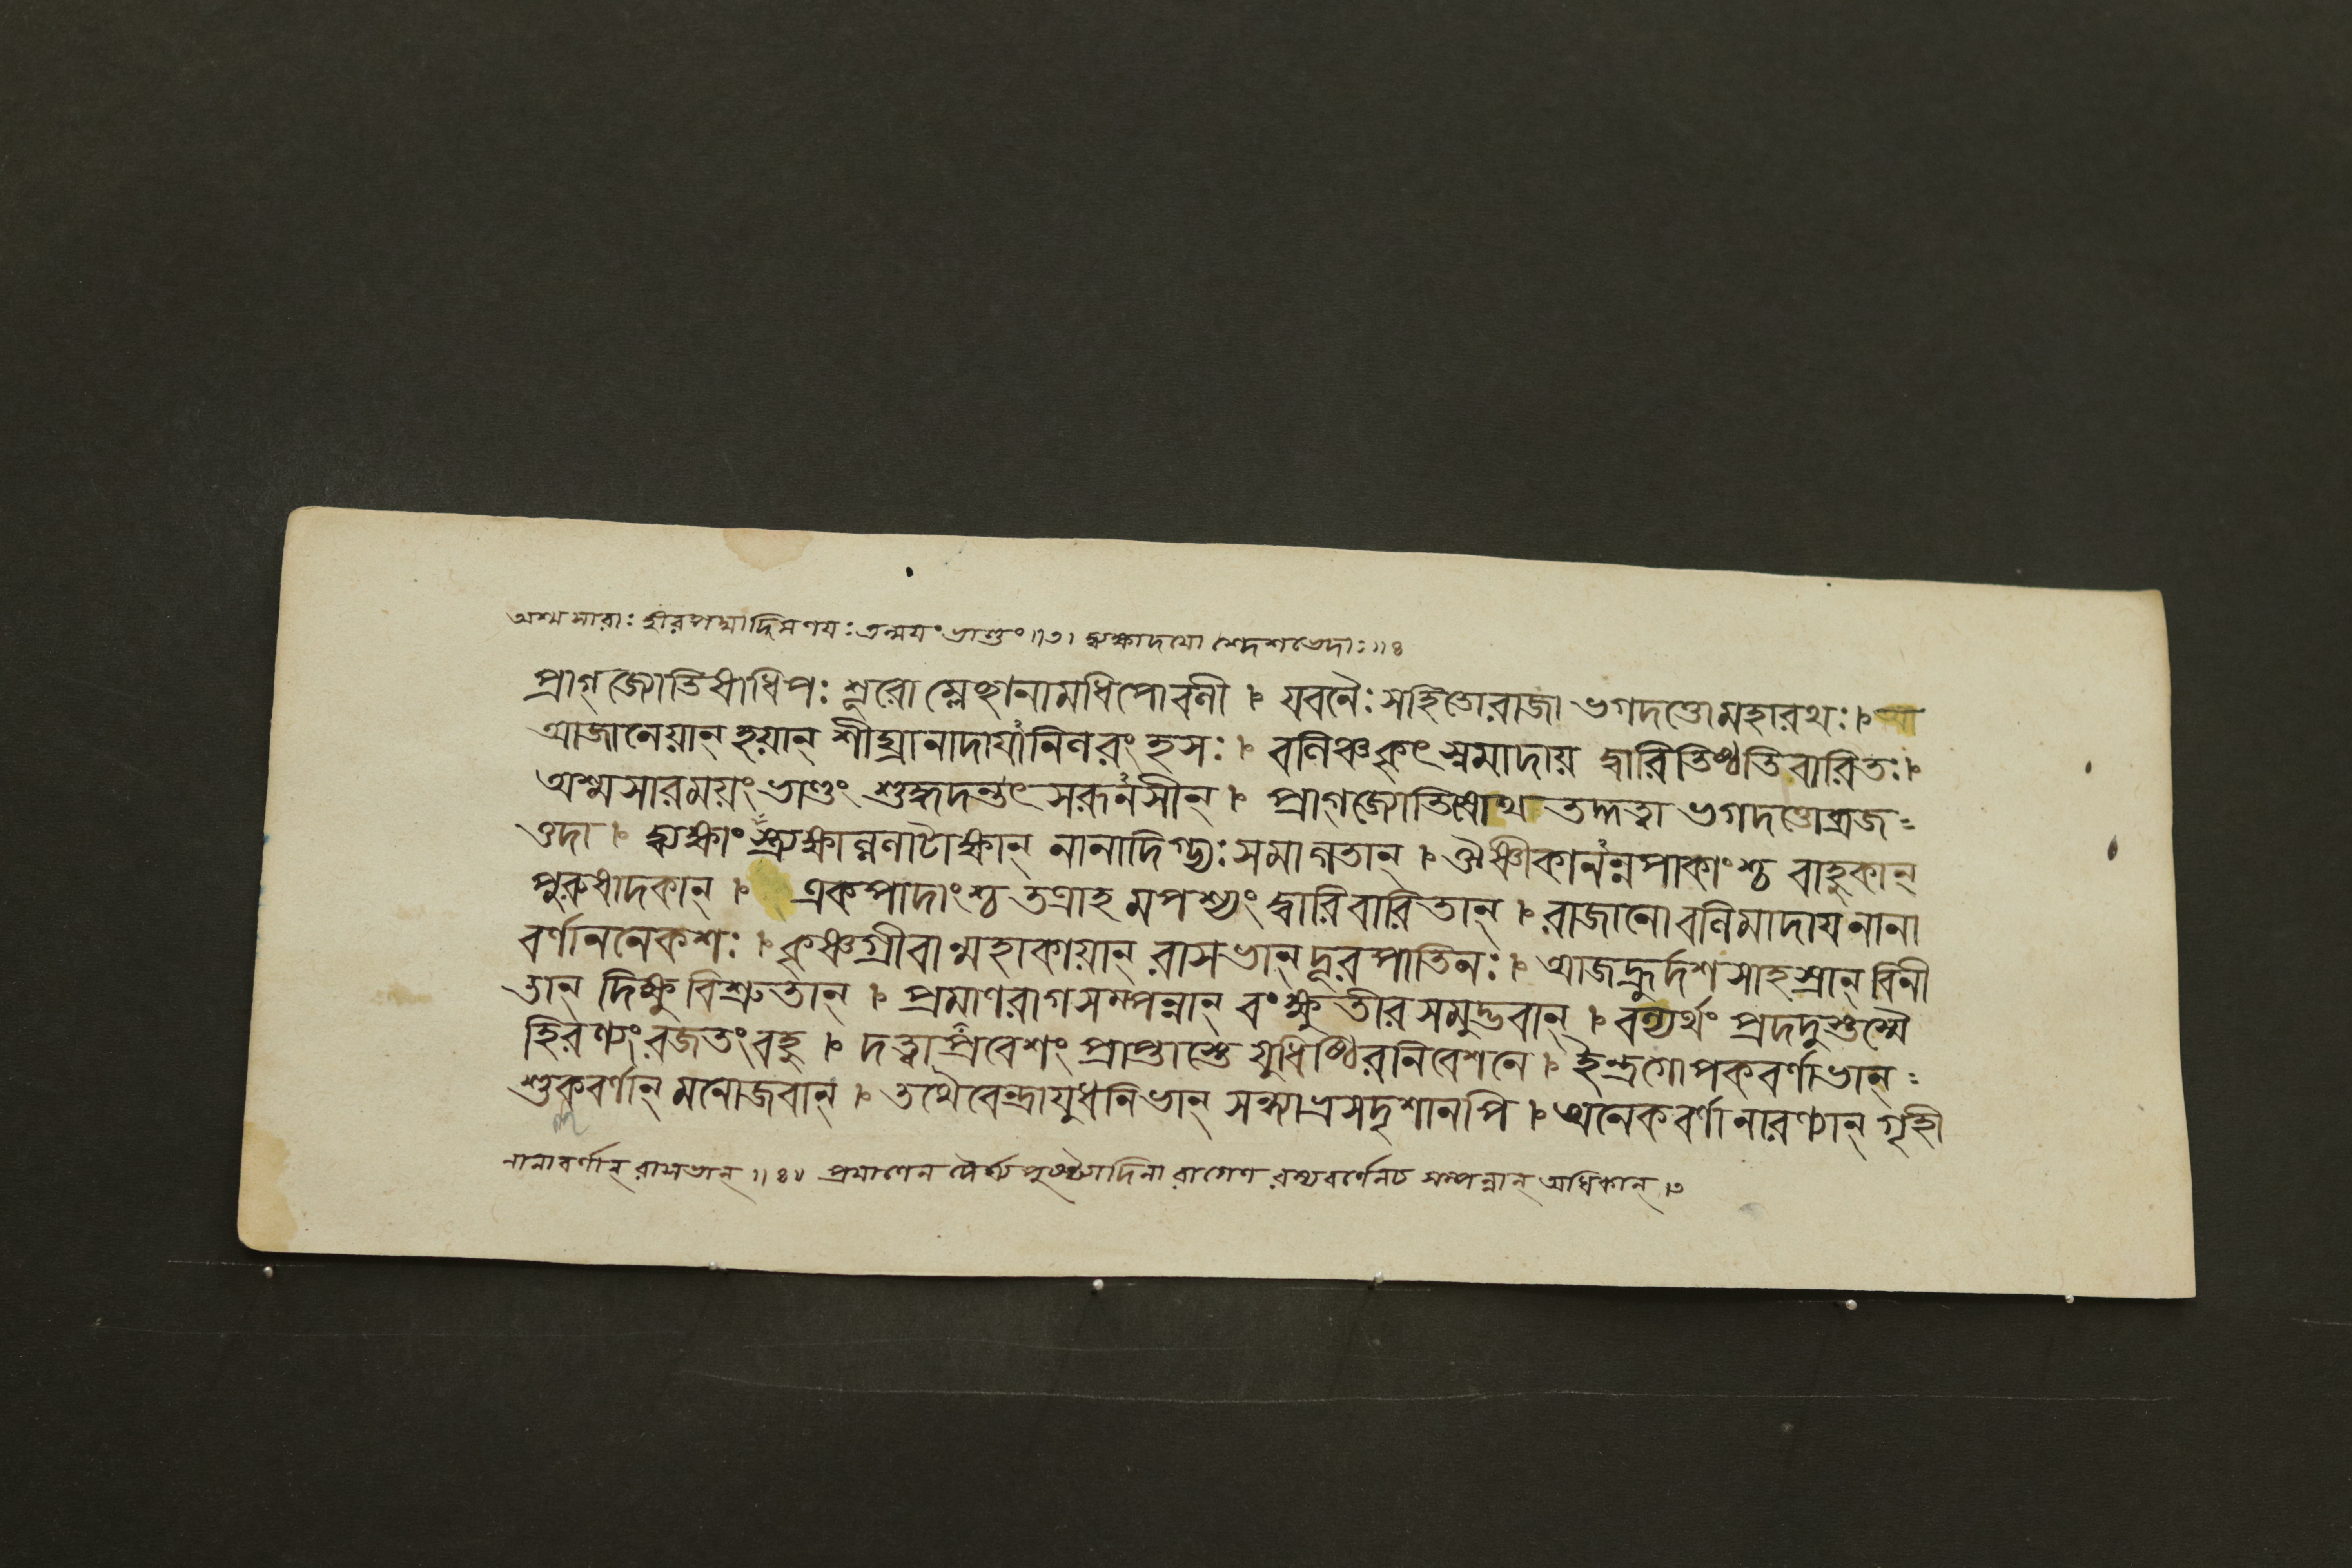 অশ্মসারাঃ হীরপদ্মাদিমণয়ঃ তন্ময়ং ভাণ্ডং॥৩। দ্ব্যক্ষাদযো দেশভেদাঃ॥৪
প্রাগ্জ্যোতিষাধিপঃ শূরো ম্লেচ্ছানামধিপোবলী । যবনৈঃ সহিতোরাজা ভগদত্তোমহারথঃ।
আজানেয়ান্ হয়ান্ শীঘ্রানাদাযানিলরংহসঃ । বলিঞ্চ কৃৎস্নমাদায় দ্বারিতিষ্ঠতি বারিতঃ।
অশ্মসারময়ং ভাণ্ডং শুদ্ধদন্তৎসরূনসীন্ । প্রাগ্জ্যোতিষোথ তদ্দত্বা ভগদত্তোব্রজ=
ত্তদা । দ্ব্যক্ষাংস্ত্র্যক্ষাল্ললাটাক্ষান্ নানাদিগ্ভ্যঃ সমাগতান্ । ঔষ্ণীকানন্নপাকাংশ্চ বাহুকান্
পুরুষাদকান্ । একপাদাংশ্চ তত্রাহমপশ্যং দ্বারিবারিতান্ । রাজানো বলিমাদায নানা
বর্ণাননেকশঃ । কৃষ্ণগ্রীবান্মহাকায়ান্ রাসভান্ দূরপাতিনঃ । আজহ্রুর্দশসাহস্রান্ বিনী
তান্ দিক্ষু বিশ্রুতান্ । প্রমাণরাগসম্পন্নান্ বংক্ষুতীরসমুদ্ভবান্ । বল্যর্থং প্রদদুস্তস্মৈ
হিরণ্যং রজতং বহু । দত্ত্বা প্রবেশং প্রাপ্তাস্তে যুধিষ্ঠিরনিবেশনে । ইন্দ্রগোপকবর্ণাভান্=
শুকবর্ণান্ মনোজবান্ । তথৈবেন্দ্রাযুধনিভান্ সন্ধ্যাভ্রসদৃশানপি । অনেকবর্ণানারণ্যান্ গৃহী
নানাবর্ণান্ রাসভান্॥৪॥ প্রমাণেন দৈর্ঘ্য রাগেণ বর্ণেনচ সম্পন্নান্ অধিকান্।৩